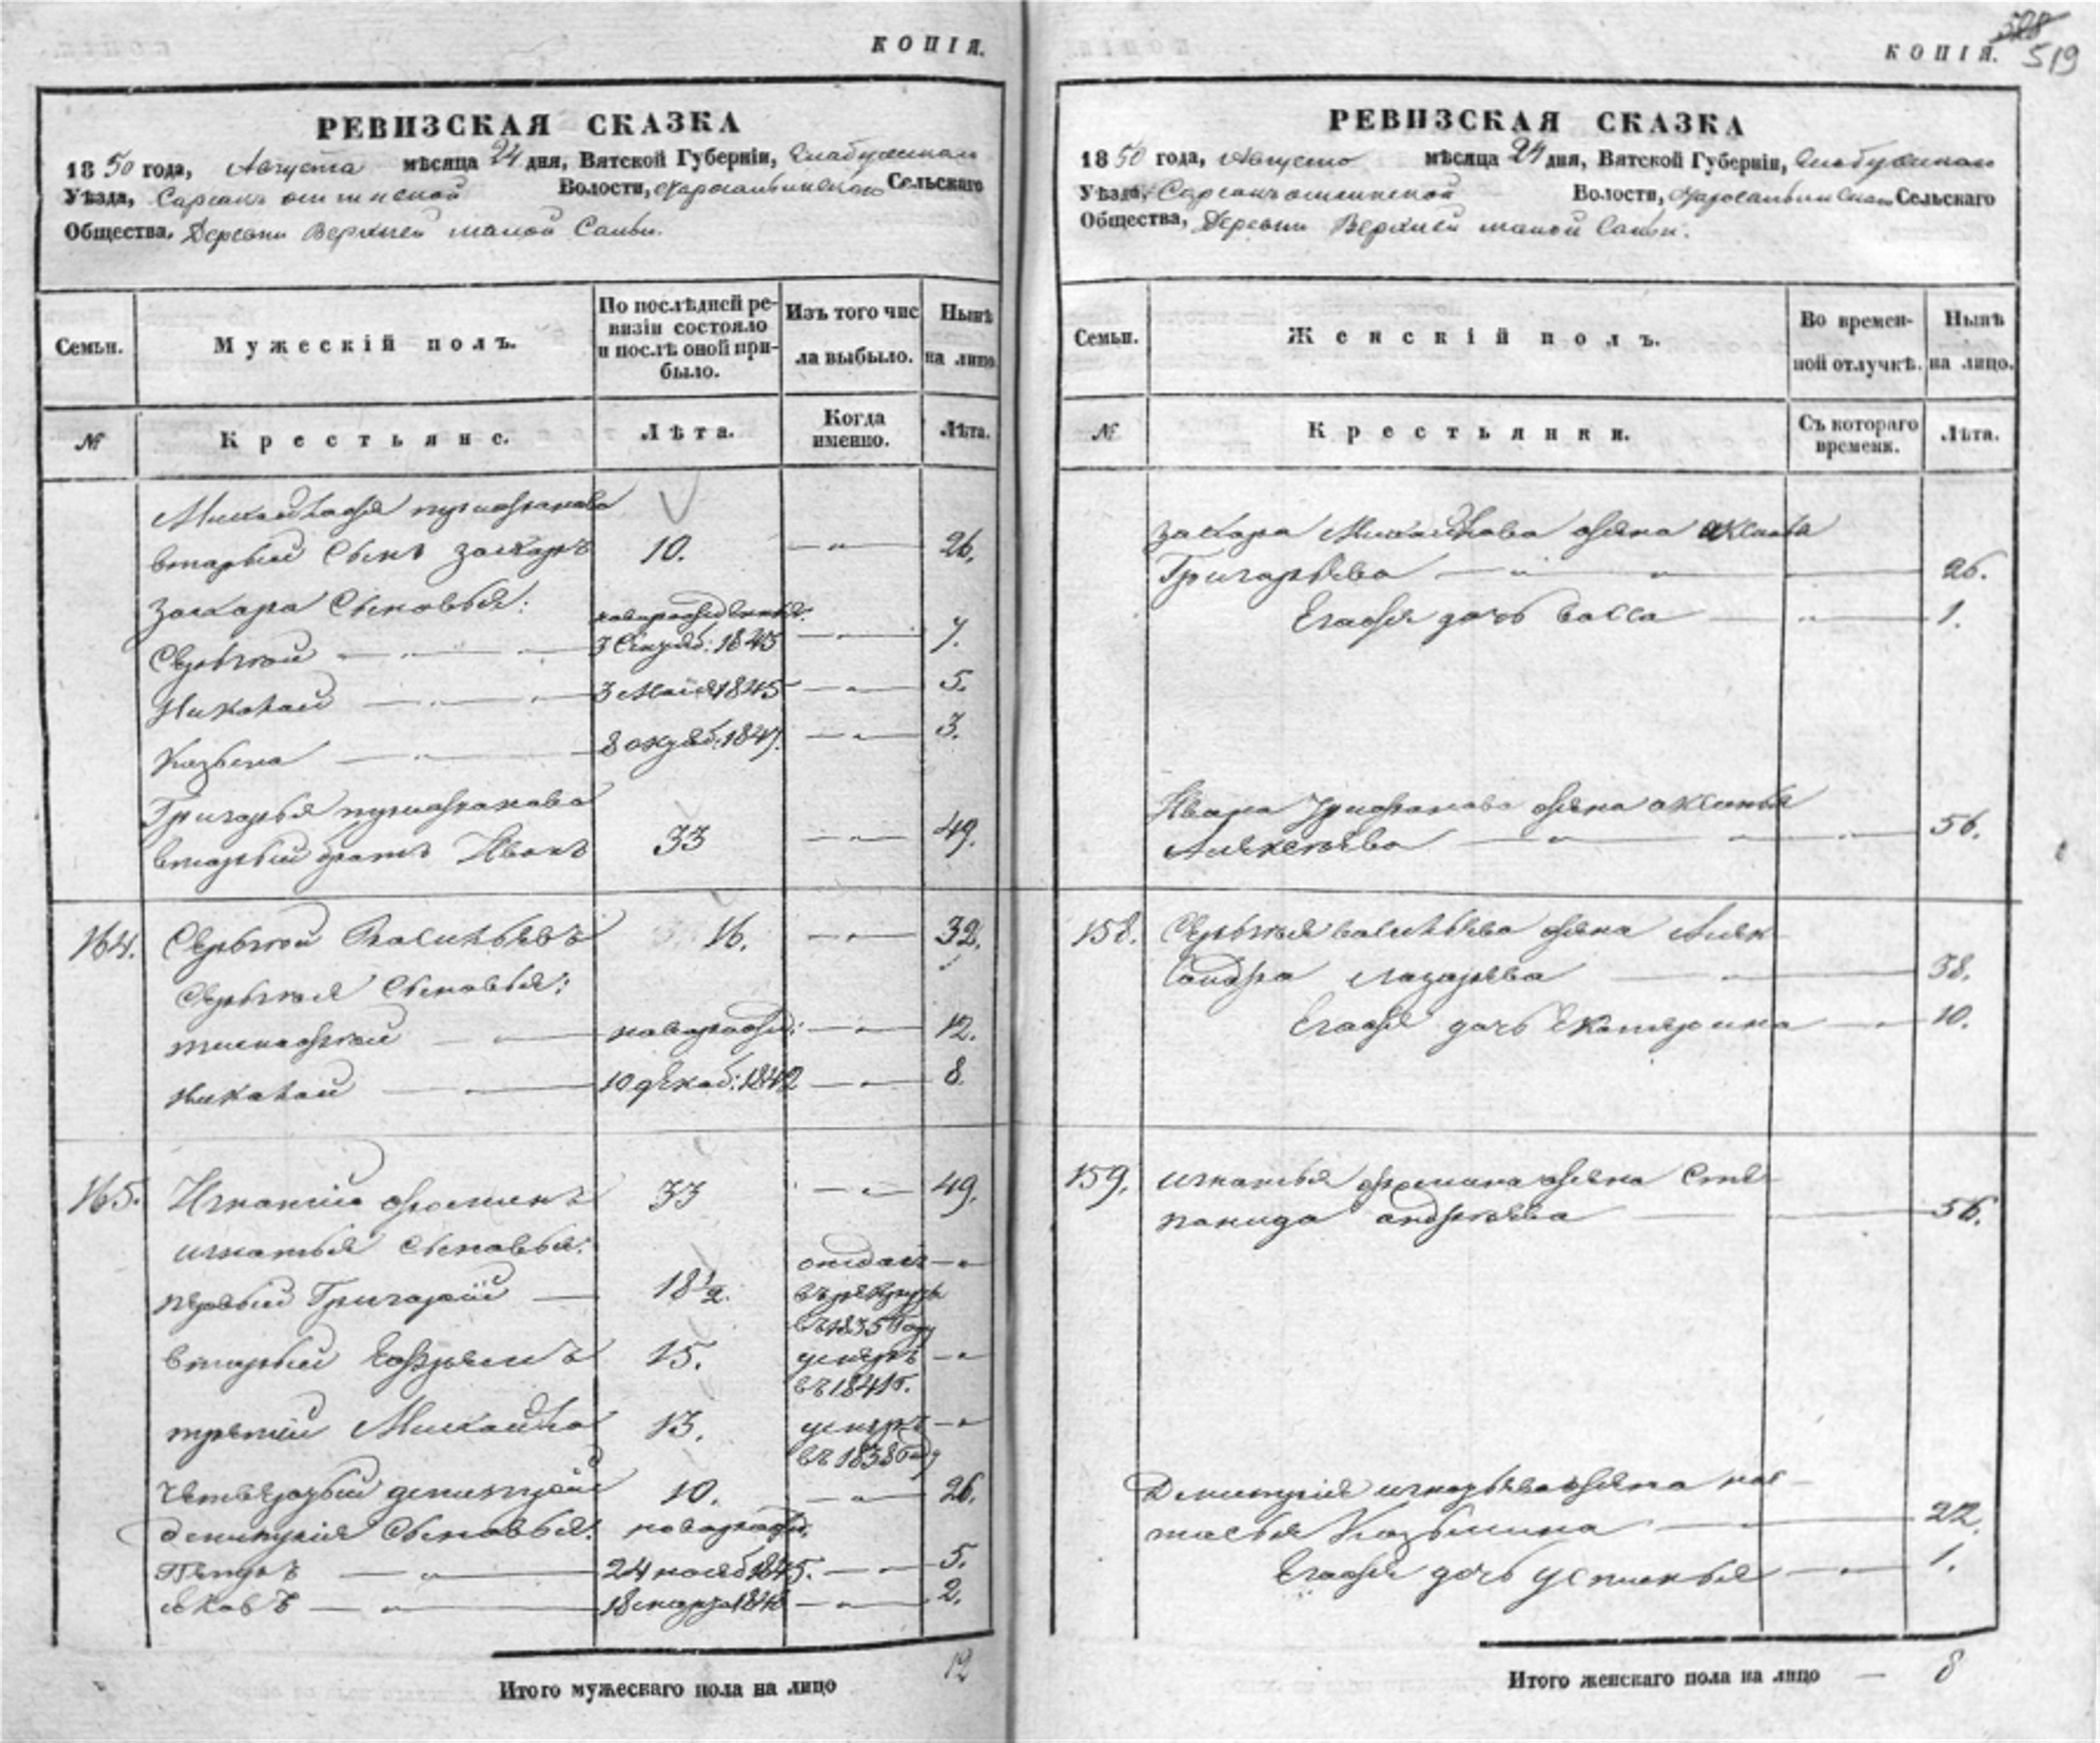 КОПІЯ.
РЕВИЗСКАЯ СКАЗКА
1850 года, Августа мѣсяца 24 дня, Вятской Губерніи, Елабужскаго
Уѣзда, Волости, Сельскаго
Общества, Деревни Верхней малой Сальи.
Семьи. Мужескій полъ. По послѣдней ре-
визіи состояло
и послѣ оной при-
было. Изъ того чис
ла выбыло. Нынѣ
на лицо
№ Крестьяне. Лѣта. Когда
именно. Лѣта.
Михайла
вторый сынъ Захаръ 10. — " — 26.
Захара сыновья: новорожденные
Сергѣй — " — 1843 — " — 7.
Николай — " — 3 Мая 1845 — " — 5.
Козьма — " — 8 октяб: 1847. — " — 3.
Григорья
вторый братъ Иванъ 33 — " — 49.
164. Сергѣй Васильевъ 16. — " — 32.
Сергѣя сыновья:
тимофѣй — " — новорожд: — " — 12.
николай — " — 10 декаб: 1842 — " — 8.
165. Игнатій Фоминъ 33 — " — 49.
игнатья сыновья:
первый Григорій — 18½. отданъ — "
въ рекруты
въ 1835 году
вторый Ефремъ 15. умеръ — "
въ 1841 г.
третій Михайло 13. умеръ — "
въ 1838 году
четвертый дмитрій 10. — " — 26.
дмитрія сыновья: новорожд.
Петръ — " — 24 нояб 1845. — " — 5.
яковъ — " — 18 марта 1848 — " — 2.
Итого мужескаго пола на лицо 12
КОПІЯ. 519
РЕВИЗСКАЯ СКАЗКА
1850 года, Августа мѣсяца 24 дня, Вятской Губерніи, Елабужскаго
Уѣзда, Волости, Сельскаго
Общества, Деревни Верхней малой Сальи.
Семьи. Женскій полъ. Во времен-
ной отлучкѣ. Нынѣ
на лицо.
№ Крестьянки. Съ котораго
времени. Лѣта.
Захара Михайлова жена
Григорьева — " — " — 26.
Егожя дочь васса — " — 1.
Ивана жена аксинья
Алексѣева — " — " — 56.
158. Сергѣя васильева жена Алек-
сандра лазарева — " — 38.
Егожя дочь Екатерина — " — 10.
159. игнатья фомина жена Сте-
панида андреева — 56.
Дмитрія игнатьева жена нас-
тасья Козьмина — 22.
Егожя дочь устинья — " — 1.
Итого женскаго пола на лицо — 8